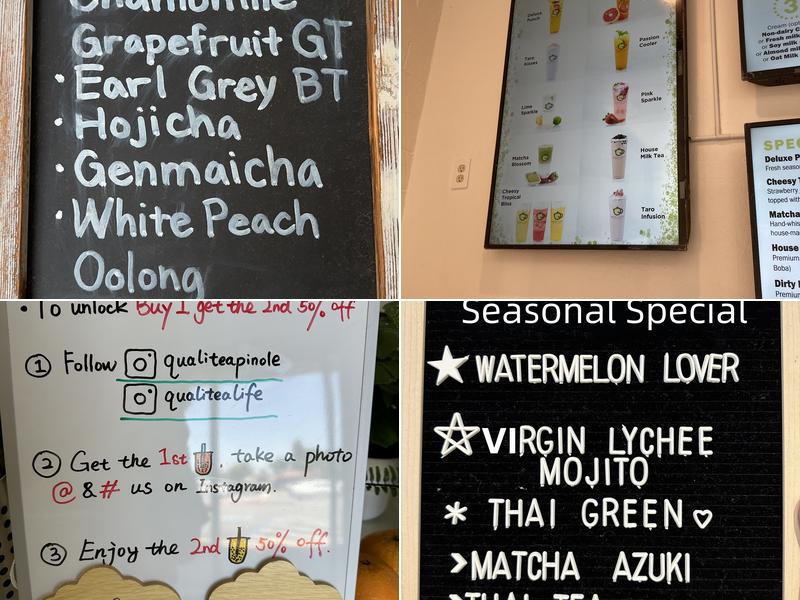 Chamomile
Grapefruit GT
• Earl Grey BT
• Hojicha
• Genmaicha
• White Peach
Oolong
Deluxe
Punch
Passion
Cooler
Taro
Kisses
Pink
Sparkle
Lime
Sparkle
House
Milk Tea
Matcha
Blossom
Cheesy
Tropical
Bliss
Taro
Infusion
3
Cream (op
Non-dairy C
or Fresh milk
or Soy milk
or Almond mil
or Oat Milk
SPEC
Deluxe P
Fresh seaso
Cheesy T
Strawberry
topped with
Matcha
Hand-whis
house-ma
House
Premium
Boba)
Dirty
Premium
• To unlock Buy 1 get the 2nd 50% off
① Follow qualiteapinole
qualitealife
② Get the 1st , take a photo
@ & # us on Instagram.
③ Enjoy the 2nd 50% off.
Seasonal Special
WATERMELON LOVER
VIRGIN LYCHEE
MOJITO
* THAI GREEN ♡
>MATCHA AZUKI
>THAI TEA